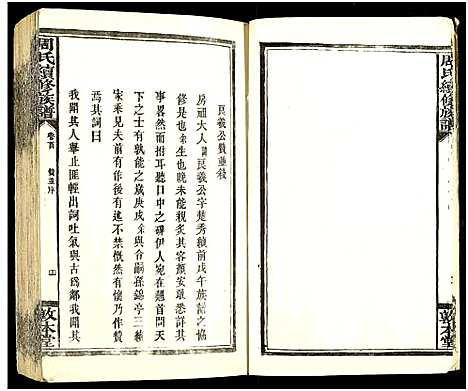 周氏續修族譜
敦本堂
良義公贊並敘
房祖大人諱良義公字楚秀前戊午族譜之協
修是也余生也晚未能親其容顏安敢悉詳其
為人然而拊耳聽口中之碑伊人宛在翹首問天
上之月吉士可興茲歲庚戌與令嗣孫錦亭三績
宋乘見夫前有作後有述不禁慨然有懷乃作贊
焉其詞曰
我聞其人舉止匪輕出詞吐氣與古為鄰我聞其
周氏續修族譜
卷首
贊並序
四
敦本堂